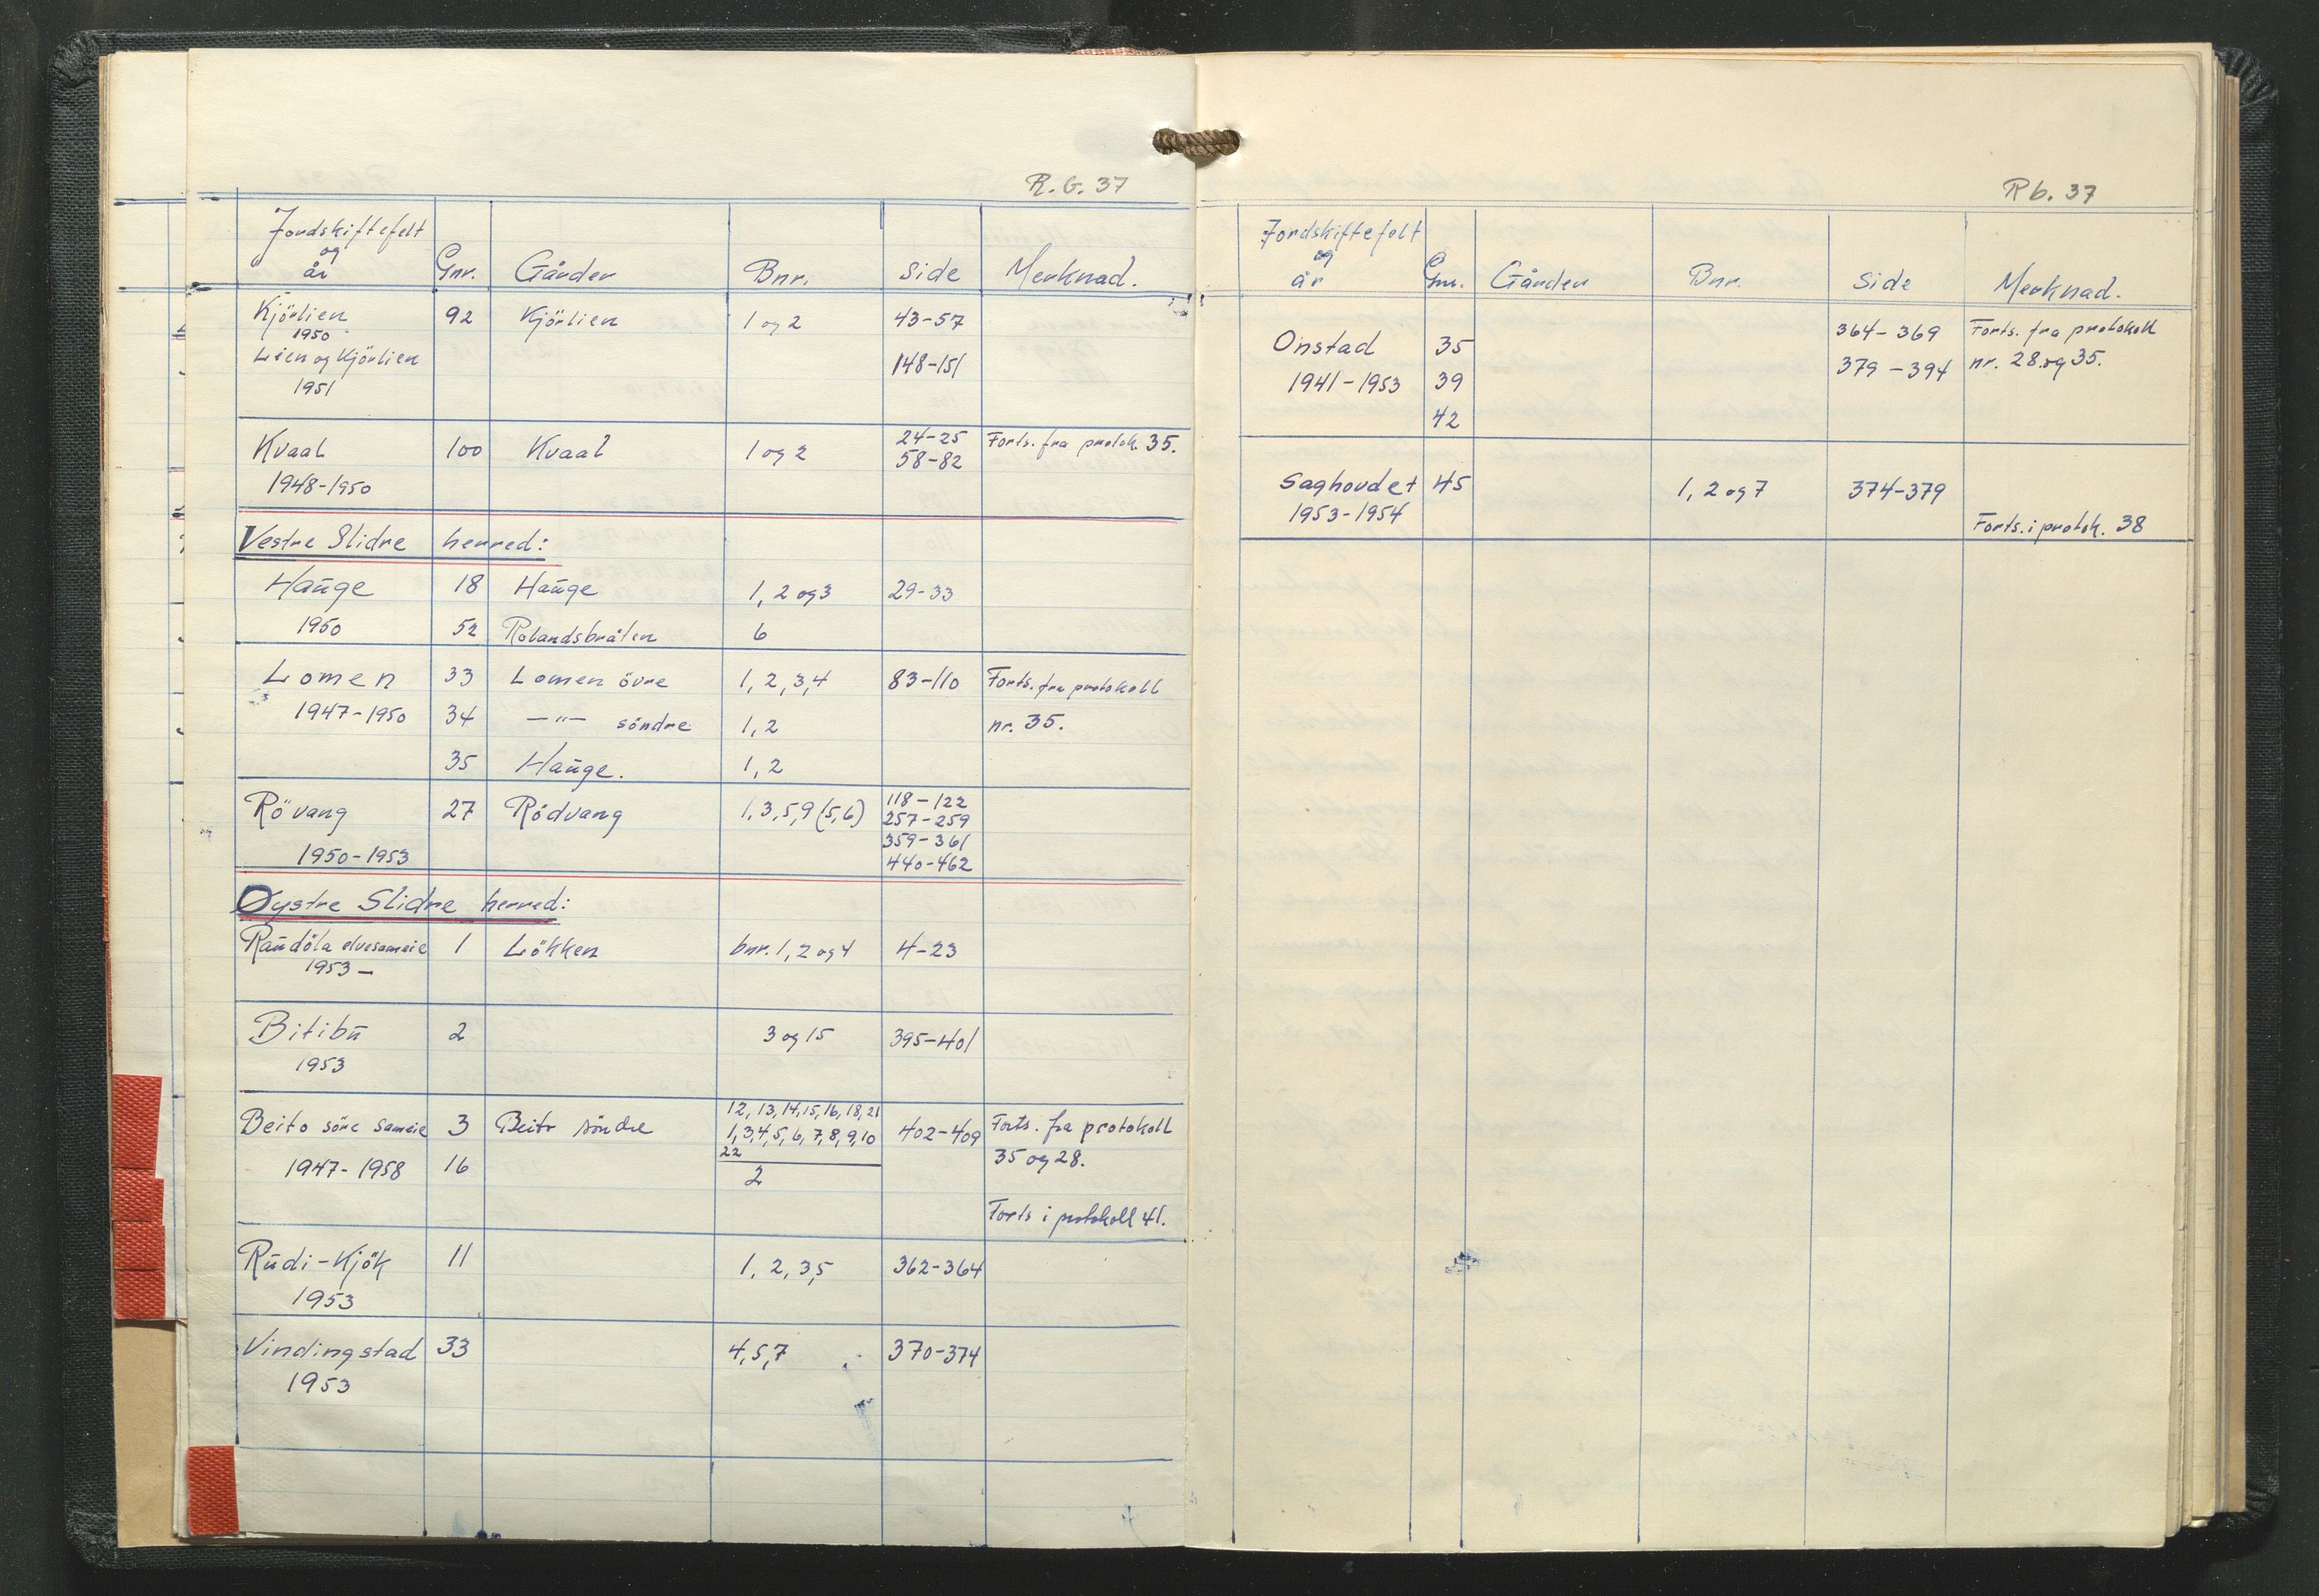 R.G. 37
Jordskiftefelt
og
år Gnr. Gårder Bnr. Side Merknad.
Kjörlien 92 Kjörlien 1 og 2 43-57
1950
Lien og Kjörlien 148-151
1951
Kvaal 100 Kvaal 1 og 2 24-25 Forts. fra protok. 35.
58-82
1948-1950
Vestre Slidre herred:
Haŭge 18 Haŭge 1, 2 og 3 29-33
1950 52 Rolandsbråten 6
Lomen 33 Lomen övre 1, 2, 3, 4 83-110 Forts. fra protokoll
1947-1950 34 —"— söndre 1, 2 nr. 35.
35 Haŭge. 1, 2
Rövang 27 Rödvang 1, 3, 5, 9 (5, 6) 118-122
257-259
359-361
1950-1953 440-462
Øystre Slidre herred:
Raŭdöla elvesameie 1 Lökken bnr. 1, 2 og 4 4-23
1953 —
Bitibŭ 2 3 og 15 395-401
1953
12, 13, 14, 15, 16, 18, 21
Beito söre sameie 3 Beito söndre 1, 3, 4, 5, 6, 7, 8, 9, 10 402-409 Forts. fra protokoll
22
1947-1958 16 2 35 og 28.
Forts i protokoll 41.
Rŭdi-Kjök 11 1, 2, 3, 5 362-364
1953
Vindingstad 33 4, 5, 7 370-374
1953
Rb. 37
Jordskiftefelt
og
år Gnr. Gårder Bnr. Side Merknad.
364-369 Forts. fra protokoll
Onstad 35
379-394 nr. 28 og 35.
1941-1953 39
42
Saghoudet 45 1, 2 og 7 374-379
1953-1954
Forts. i protok. 38